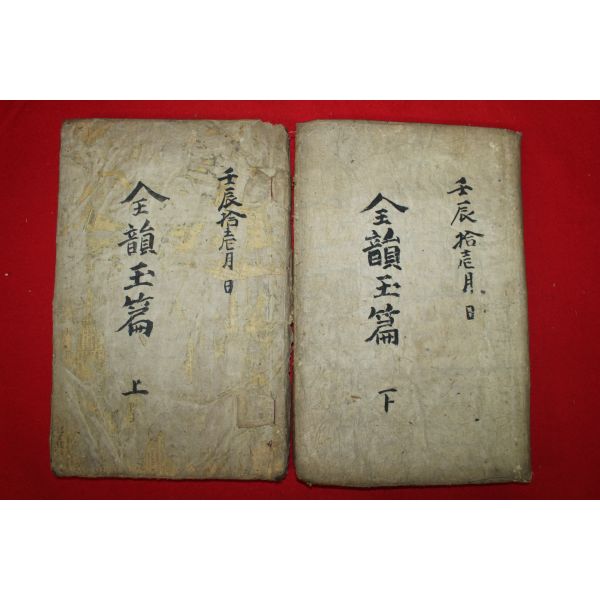 壬辰拾壱月日
全韻玉篇
上
壬辰拾壱月日
全韻玉篇
下